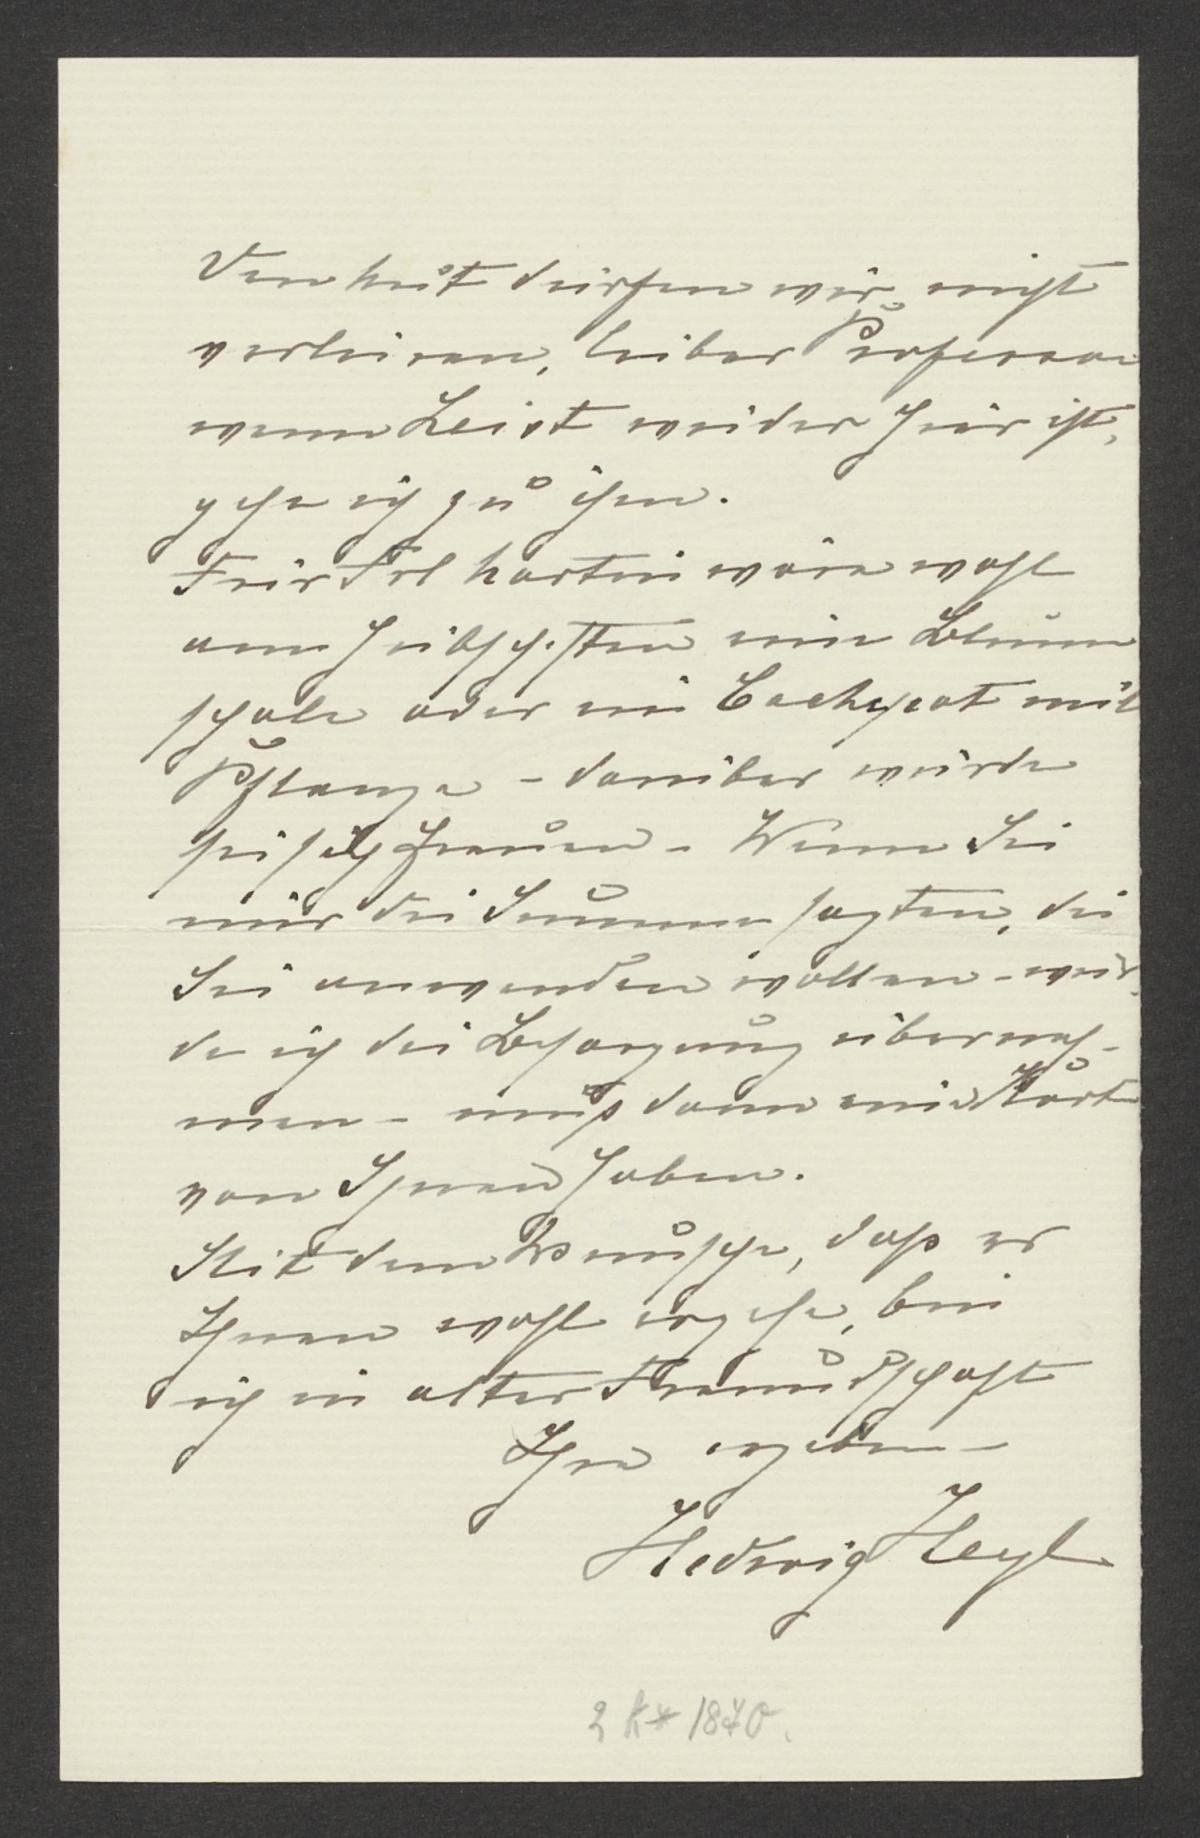 Den hut dürfen wir nicht
verlieren, lieber Professor
wenn Leist wieder hier ist,
gehe ich zu ihm.
Für Frl wäre wohl
am hübschesten eine Blumen
schale oder ein Cachepot mit
Pflanze – darüber würde
sie sich freuen – Wenn Sie
mir die Summe sagten, die
Sie anwenden wollen – wür,
de ich die Besorgung überneh-
men – muß dann eine Karte
von Ihnen haben.
Mit dem Wunsche, daß es
Ihnen wohl ergehe, bin
ich in alter Freundschaft
Ihre ergebene
Hedwig Heyl
1840.